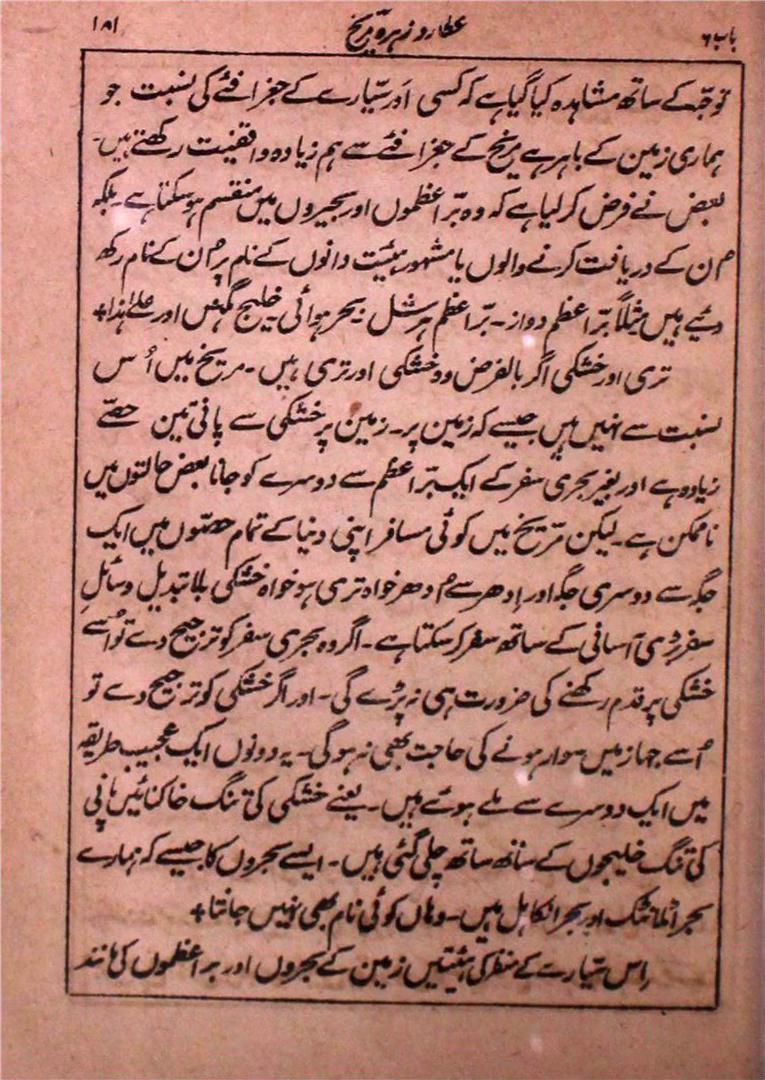 باب ۶ عطارد زہرہ مریخ ۱۸۱
توجّہ کے ساتھ مشاہدہ کیا گیا ہے کہ کسی اَور سیّارے کے جغرافئے کی نسبت جو
ہماری زمین کے باہر ہے مریخ کے جغرافئے سے ہم زیادہ واقفیت رکھتے ہیں۔
بعض نے فرض کر لیا ہے کہ وہ برّ اعظموں اور بحیروں میں منقسم ہو سکتا ہے۔ بلکہ
اُن کے دریافت کرنے والوں یا مشہور ہیئت دانوں کے نام پر اُن کے نام رکھ
دئیے ہیں مثلاً برّ اعظم دواز۔ برّ اعظم ہرشل۔ بحر ہوائی خلیج ہگنس اور علےٰ ہذا+
تری اور خشکی اگر بالفرض وہ خشکی اور تری ہیں۔ مریخ میں اُس
نسبت سے نہیں ہیں جیسے کہ زمین پر۔ زمین پر خشکی سے پانی تین حصّے
زیادہ ہے اور بغیر بحری سفر کے ایک برّ اعظم سے دوسرے کو جانا بعض حالتوں میں
ناممکن ہے۔ لیکن مرّیخ میں کوئی مسافر اپنی دنیا کے تمام حصّوں میں ایک
جگہ سے دوسری جگہ اور اِدھر سے اُدھر خواہ تری ہو خواہ خشکی بلا تبدیل وسائلِ
سفر بڑی آسانی کے ساتھ سفر کر سکتا ہے۔ اگر وہ بحری سفر کو ترجیح دے تو اُسے
خشکی پر قدم رکھنے کی ضرورت ہی نہ پڑے گی۔ اور اگر خشکی کو ترجیح دے تو
اُسے جہاز میں سوار ہونے کی حاجت بھی نہ ہو گی۔ یہ دونوں ایک عجیب طریقہ
میں ایک دوسرے سے ملے ہوئے ہیں۔ یعنے خشکی کی تنگ خاکنائیں پانی
کی تنگ خلیجوں کے ساتھ ساتھ چلی گئی ہیں۔ ایسے بحروں کا جیسے کہ ہمارے
بحر اٹلانٹک اور بحر الکاہل ہیں۔ وہاں کوئی نام بھی نہیں جانتا+
اِس سیّارے کے منظر کی ہیئتیں زمین کے بحروں اور بر اعظموں کی مانند